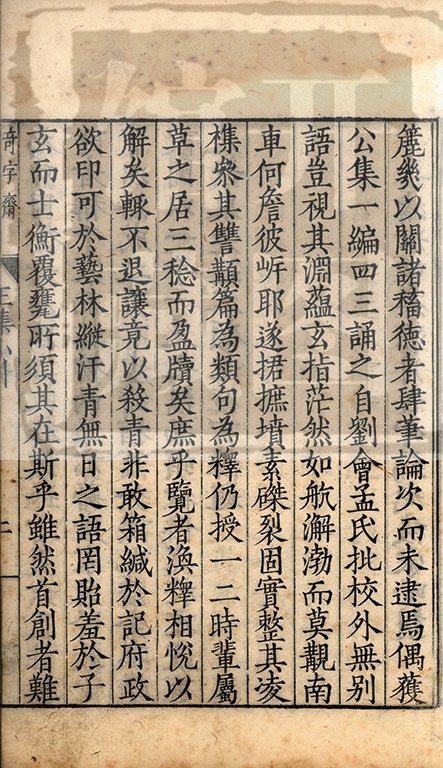 簏爰以關諸穡德者肆筆論次而未逮焉偶獲
公集一編四三誦之自劉會孟氏批校外無別
語豈視其淵蘊玄指茫然如航澥渤而莫覩南
車何詹彼岸耶遂捃摭墳素磔裂固實整其凌
雜參其讐纇篇為類句為釋仍授一二時輩屬
草之居三稔而盈牘矣庶乎覽者渙釋相悅以
解矣輙不退讓竟以殺青非敢箱緘於記府政
欲印可於藝林縱汗青無日之語罔貽羞於子
玄而士衡覆甕所須其在斯乎雖然首創者難
奇字齋
王集
二